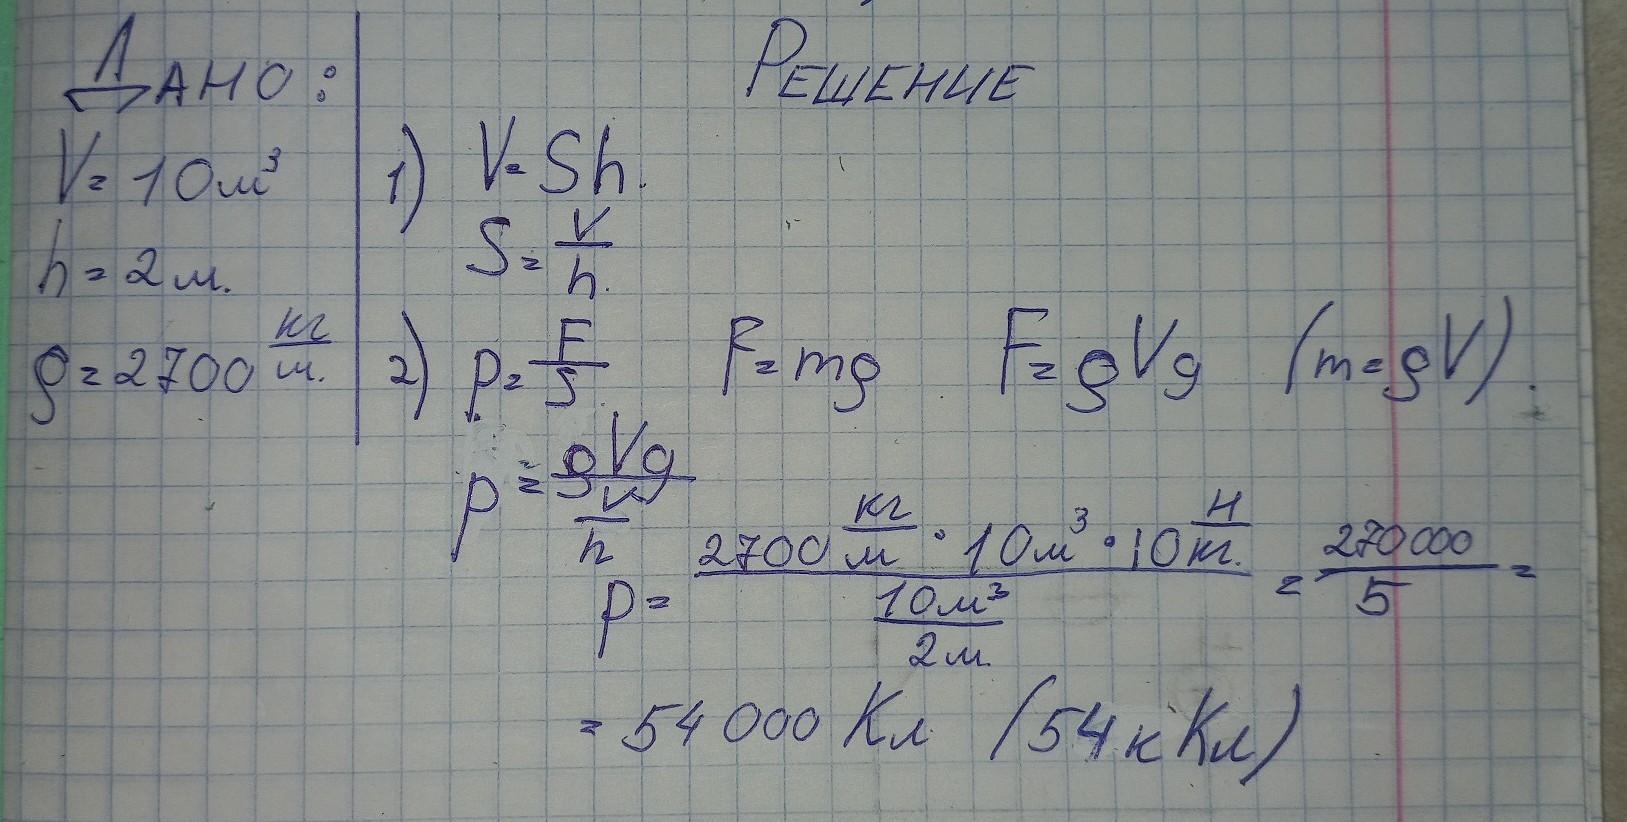 ДАНО:
V = 10 м³
h = 2 м.
ρ = 2700 кг/м.
РЕШЕНИЕ
1) V = Sh.
S = V/h.
2) p = F/S. F = mg F = ρVg (m = ρV).
p = ρVg/(V/h)
p = (2700 кг/м · 10 м³ · 10 Н/кг.)/(10 м³/2 м.) = 270 000/5 =
= 54 000 Кл (54 кКл)